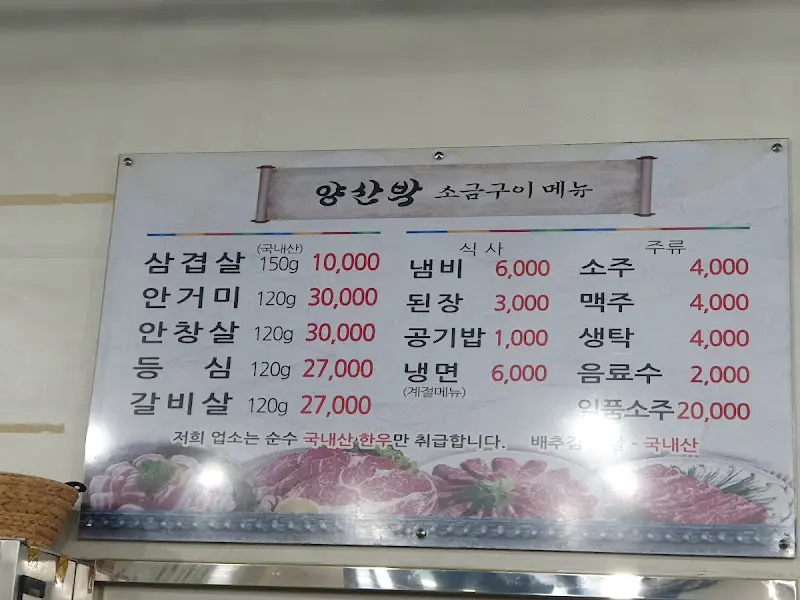 양산박 소금구이 메뉴
(국내산)
삼겹살 150g 10,000
안거미 120g 30,000
안창살 120g 30,000
등심 120g 27,000
갈비살 120g 27,000
식사
냄비 6,000
된장 3,000
공기밥 1,000
냉면 6,000
(계절메뉴)
주류
소주 4,000
맥주 4,000
생탁 4,000
음료수 2,000
일품소주 20,000
저희 업소는 순수 국내산 한우만 취급합니다. 배추김 - 국내산